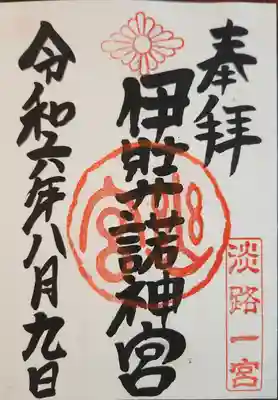 奉拝
淡路一宮
伊弉諾神宮
令和六年八月九日